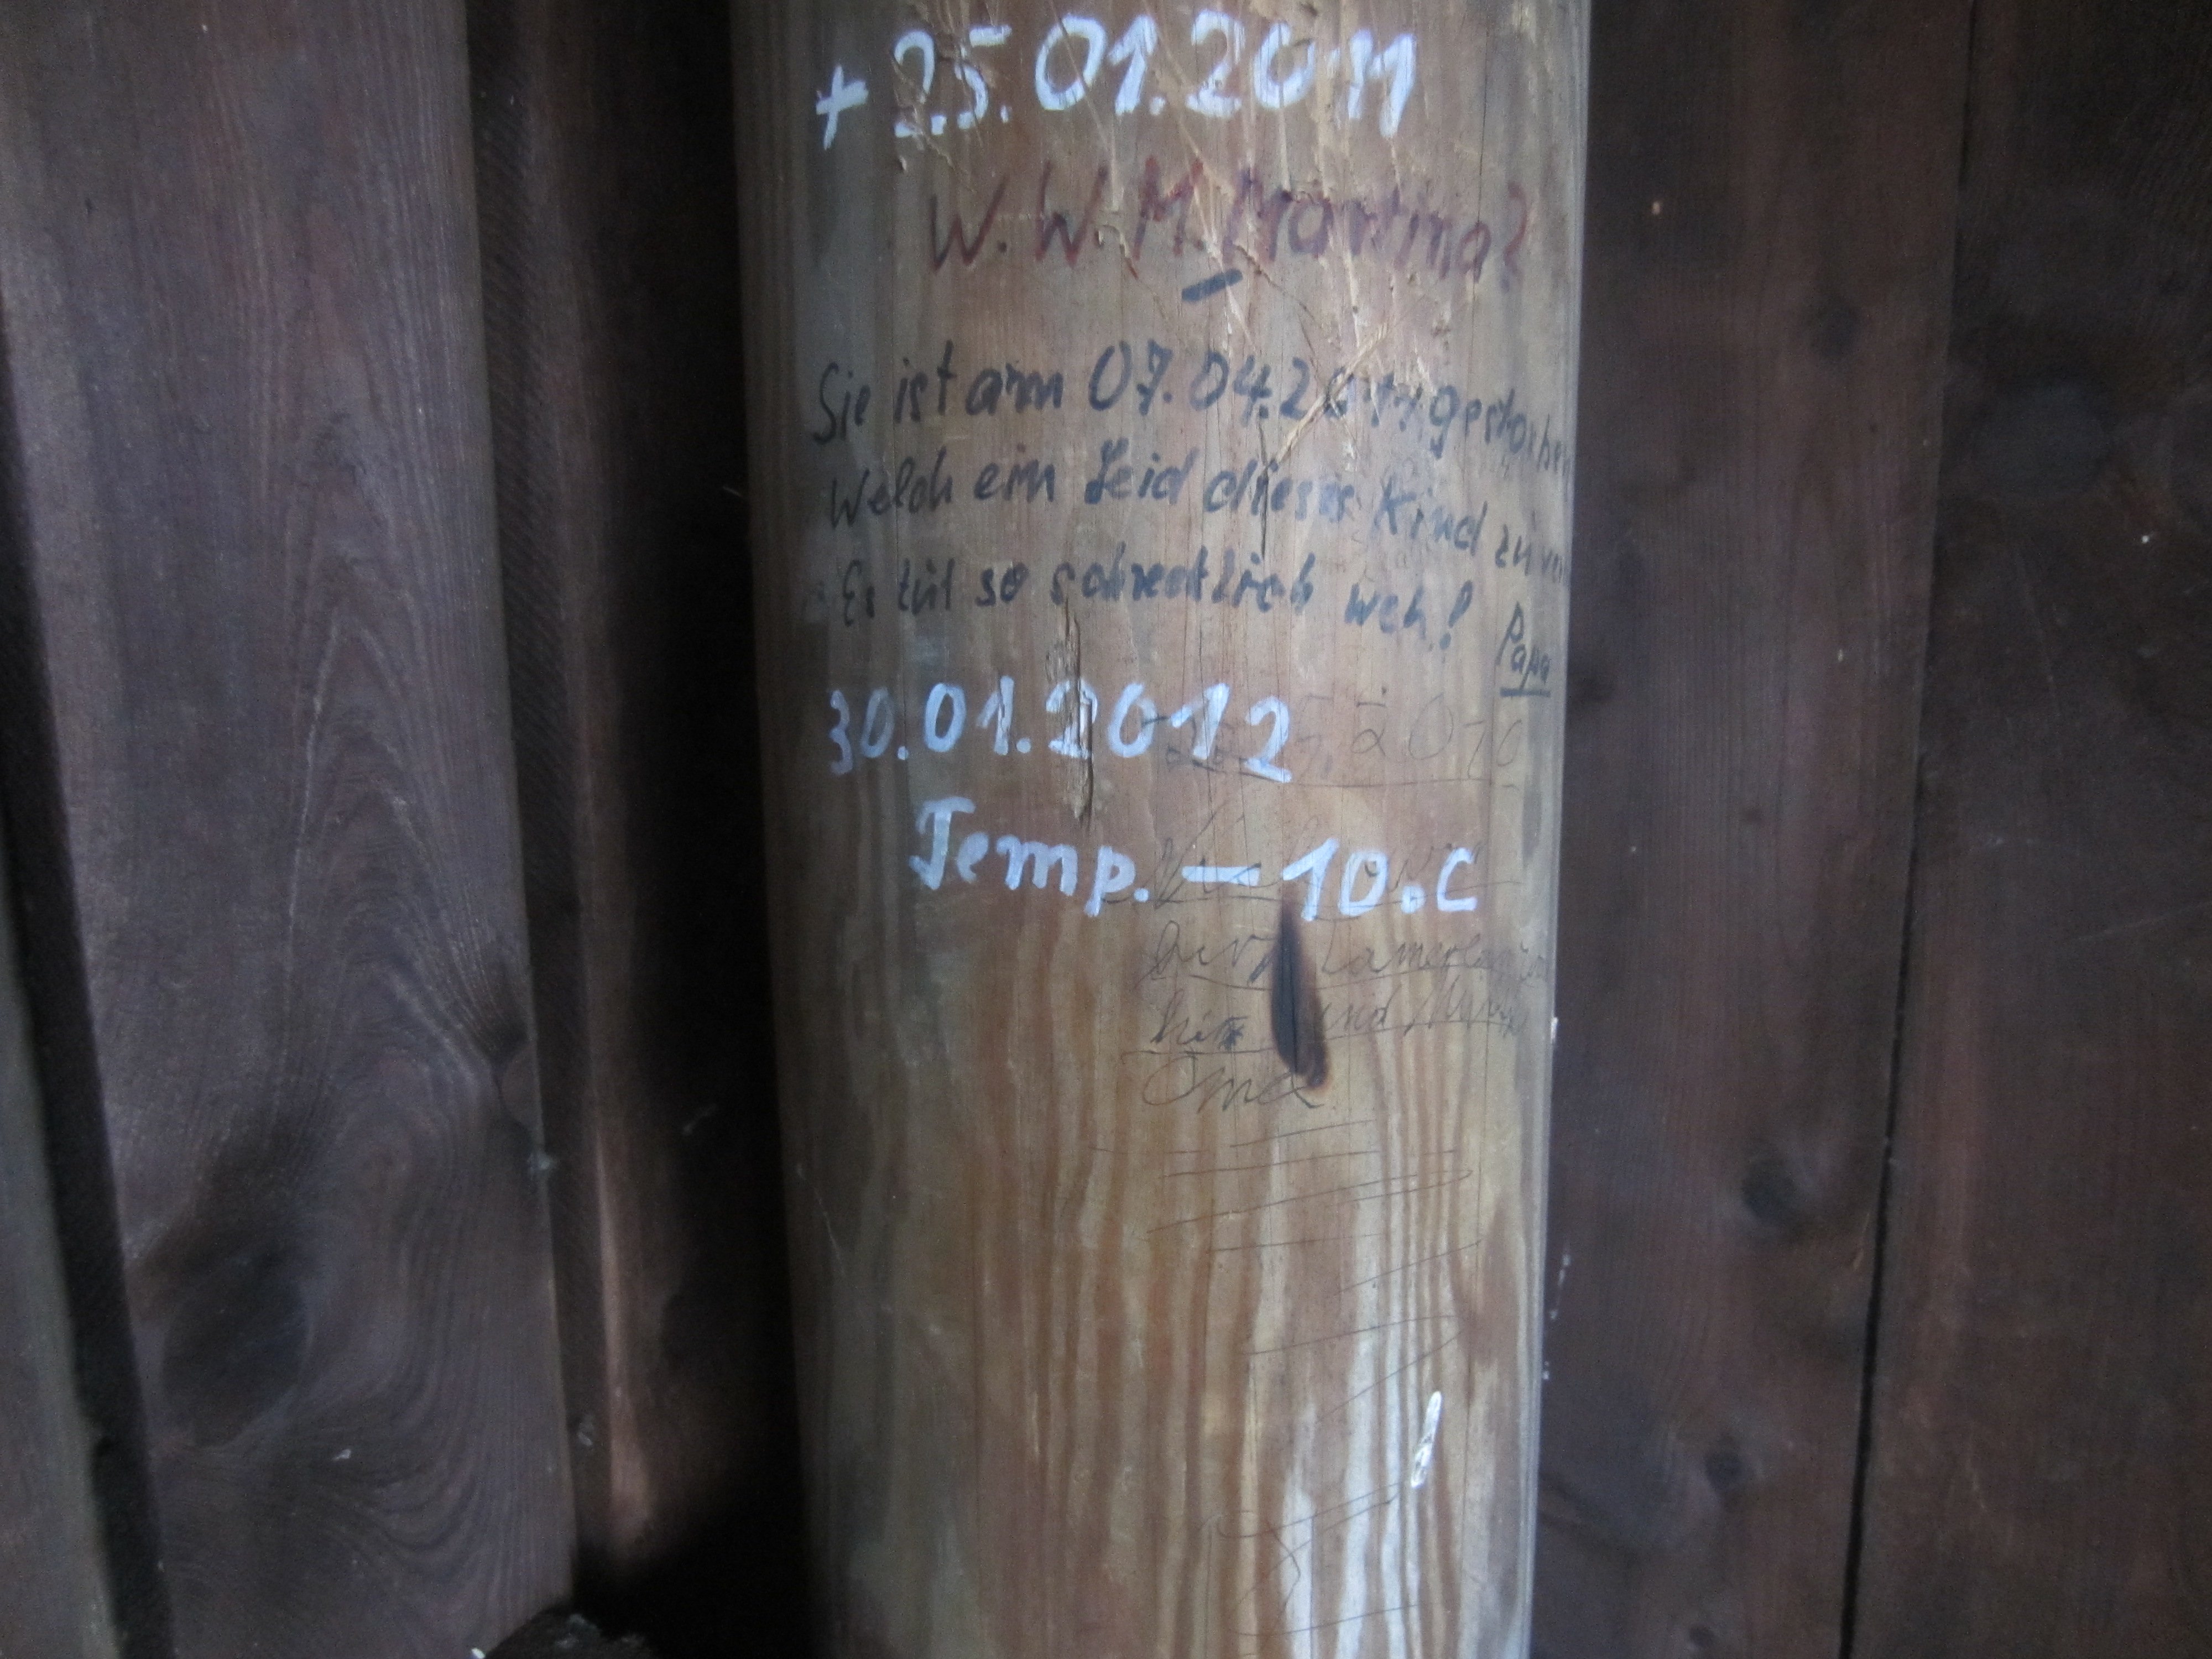 + 25.01.2011
W. W. M. Martina?
Sie ist am 07.04.2011 gestorben
Welch ein Leid dieses Kind zu ver
Es tut so schrecklich weh!
Papa
30.01.2012
Temp. – 10°C
2010
und
Oma